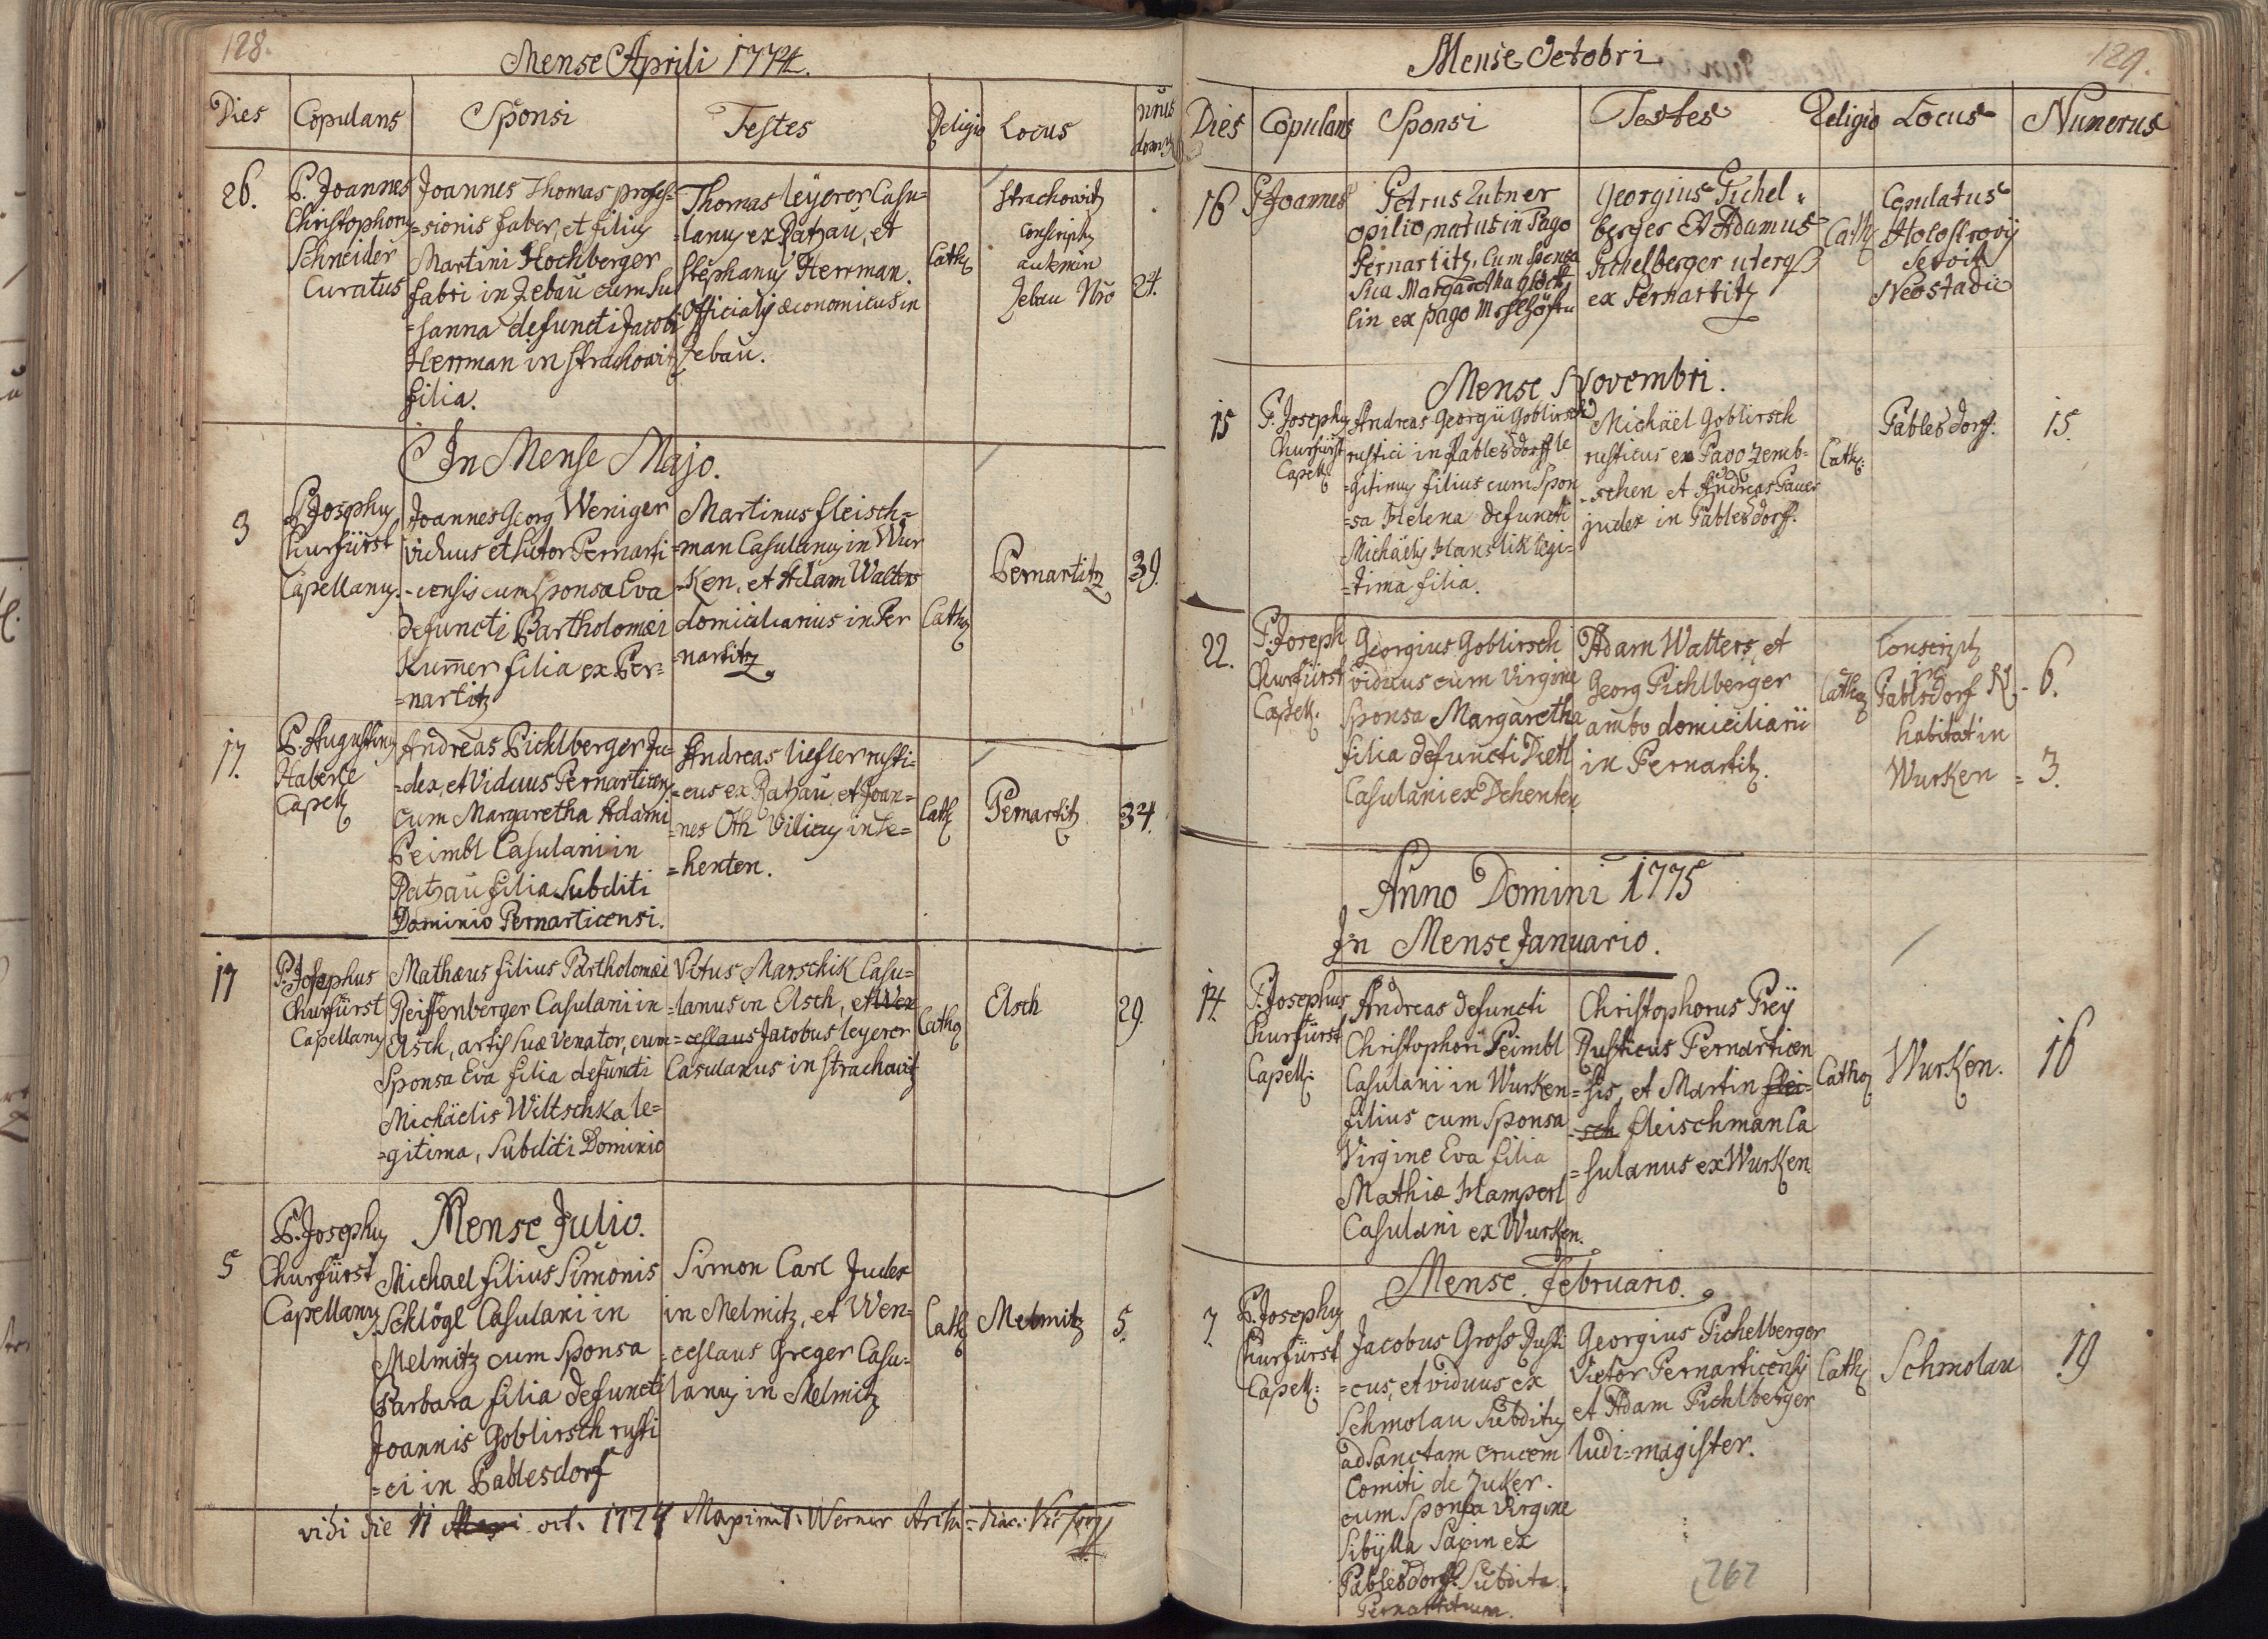 128.
Mense Aprili 1774.
Dies Copulans Sponsi Testes Religio Locus
26.
P. Joannes
Christophorus
Schneider
Curatus
Joannes Thomas profes=
=sionis faber, et filius
Martini Hochberger
fabri in Zebau cum Su
=sanna defuncti Jacobi
Herrman in Strachowitz
filia.
Thomas Leyerer Casu=
=lanus ex Ratzau, et
Stephanus Herrman
Officialis œconomicus in
Zebau.
Cath.
Strachowitz
Conscriptus
autem in
Zebau Nro
24.
In Mense Majo.
3
P. Josephus
Churfürst
Capellanus.
Joannes Georg Weniger
viduus et Sutor Pernarti
=censis cum Sponsa Eva
defuncti Bartholomæi
Kum̅er filia ex Per=
=nartitz
Martinus fleisch=
=man Casulanus in Wur
=ken, et Adam Walters
domiciliarius in Per
=nartitz
Cath.
Pernartitz
39.
17.
P. Augustinus
Haberle
Capell.
Andreas Pichlberger Ju=
=dex, et Viduus Pernarticensis
cum Margaretha Adami
Peimbl Casulani in
Ratzau filia Subditi
Dominio Pernarticensi.
Andreas liefler rusti=
=cus ex Ratzau, et Joan=
=nes Oth Vilicus in Te=
=henten.
Cath.
Pernartitz
34.
17
P. Josephus
Churfürst
Capellanus
Mathæus filius Bartholomæi
Reiffenberger Casulani in
Elsch, artis suæ Venator, cum
Sponsa Eva filia defuncti
Michäelis Wiltschka le=
=gitima, Subditi Dominio
Vitus Marschik Casu=
=lanus in Elsch, et Wen
=ceslaus Jacobus leyerer
Casulanus in Strachowitz
Cath.
Elsch
29.
Mense Julio.
5
P. Josephus
Churfürst
Capellanus
Michael filius Simonis
Schlögl Casulani in
Melmitz cum Sponsa
Barbara filia defuncti
Joannis Goblirsch rusti
=ci in Pablesdorf
Simon Carl Judex
in Melmitz, et Wen=
=ceslaus Greger Casu=
lanus in Melmitz
Cath.
Melmitz
5.
vidi die 11 Maji oct. 1774 Maximil: Werner
129.
Mense Octobri
Dies Copulans Sponsi Testes Religio Locus Numerus
16
P. Joannes
Petrus Lutner
opilio, natus in Pago
Pernartitz, Cum Sponsa
Sua Margaretha
lin ex pago
Georgius Pichel=
berger Et Adamus
Pichelberger uterq
ex Pernartitz
Cath.
Copulatus
Neostadii
Mense Novembri.
15
P. Josephus
Churfürst
Capell.
Andreas Georgii Goblirsch
rustici in Pablesdorff le
=gitimus filius cum Spon
=sa Helena defuncti
Michäelis Hanslik legi=
=tima filia.
Michäel Goblirsch
rusticus ex Pago Zemb=
=schen et Andreas Pauer
judex in Pablesdorff.
Cath:
Pablesdorf.
15.
22.
P. Joseph
Churfürst
Capell.
Georgius Goblirsch
viduus cum Virgine
Sponsa Margaretha
filia defuncti Dietl
Casulani ex Dehenten
Adam Walters, et
Georg Pichlberger
ambo domiciliarii
in Pernartitz.
Cath.
Conscript.
in
Pablsdorf N. - 6.
habitat in
Wurken = 3.
Anno Domini 1775
In Mense Januario.
14.
P. Josephus
Churfürst
Capell:
Andreas defuncti
Christophori Peimbl
Casulani in Wurken
filius cum Sponsa
Virgine Eva filia
Mathiæ Hamperl
Casulani ex Wurken.
Christophorus Preÿ
Rusticus Pernarticen
=sis, et Martin flei=
=sch fleischman Ca
=sulanus ex Wurken
Cath.
Wurken.
16
Mense Februario.
7
P. Josephus
Churfürst
Capell:
Jacobus Gross Rusti
=cus, et viduus ex
Schmolau Subditus
ad Sanctam Crucem
Comiti de Zuker.
cum Sponsa Virgine
Sibÿlla Sapin ex
Pablesdorff Subdita
Georgius Pichelberger
Vietor Pernarticensis
et Adam Pichlberger
ludi=magister.
Cath.
Schmolau
19
262